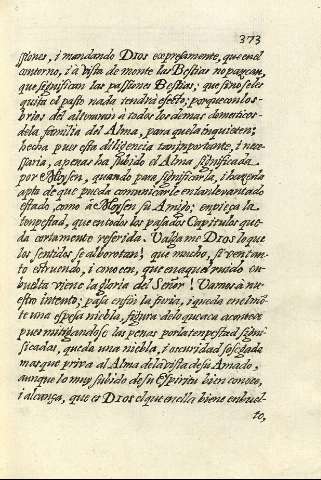 373
ssiones, i mandando Dios expresamente, que en el
contorno, i à vista de monte las Bestias no pazcan,
que significan las passiones Bestias; que si no se les
quita el pasto nada tendrà efecto; porque con los
brios del alboran à todos los demas domesticos
de la familia del Alma, para que la inquieten;
hecha pues esta diligencia tan importante, i nece-
ssaria, apenas ha subido el Alma significada
por Moysen, quando para significarla, i hazerla
apta de que pueda comunicarle en tan levantado
estado, como à Moysen su Amigo; empieça la
tempestad, que en todos los pasados Capitulos que-
da cortamente referida: Valgame Dios lo que
los sentidos se alborotan! que mucho, si ven tan-
to estruendo, i conocen, que en aquel ruido en-
buelta viene la gloria del Señor! Vamos à nu-
estro intento; pasa en fin la furia, i queda en el mõ-
te una espesa niebla, figura de lo que acà acontece
pues mitigandose las penas por la tempestad signi-
ficadas, queda una niebla, i oscuridad sosegada
mas que priva al Alma de la vista de su Amado,
aunque lo muy subido de su Espiritu bien conoce,
i alcança, que es Dios el que en ella viene enbuel-
to,